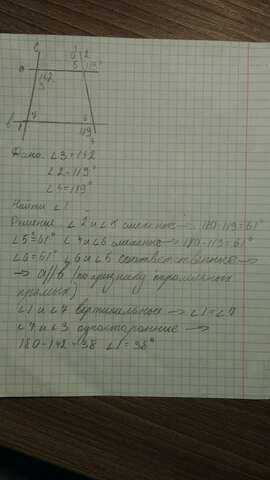 c d 2
a 5 119°
142
3
b 7 6
1 119
4
Дано: ∠3=142
∠2=119°
∠4=119°
Найти ∠1
Решение ∠2 и ∠5 смежные → 180-119=61°
∠5=61° ∠4 и ∠6 смежные → 180-119=61°
∠6=61° ∠6 и ∠5 соответственные →
→ a||b (по признаку параллельных
прямых)
∠1 и ∠7 вертикальные → ∠1=∠7
∠7 и ∠3 односторонние →
180-142=38 ∠1=38°